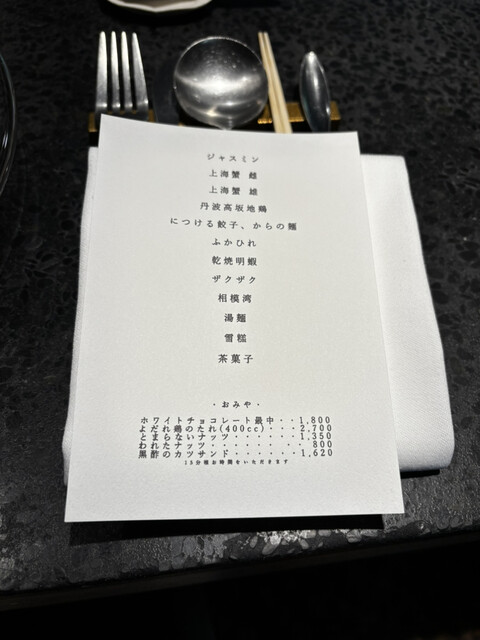 ジャスミン
上海蟹 雌
上海蟹 雄
丹波高坂地鶏
につける餃子、からの麺
ふかひれ
乾焼明蝦
ザクザク
相模湾
湯麺
雪糕
茶菓子
・おみや・
ホワイトチョコレート最中・・1,800
よだれ鶏のたれ(400cc)・・・・・2,700
とまらないナッツ・・・・・・・1,350
われたナッツ・・・・・・・・・800
黒酢のカツサンド・・・・・・・1,620
15分程お時間をいただきます